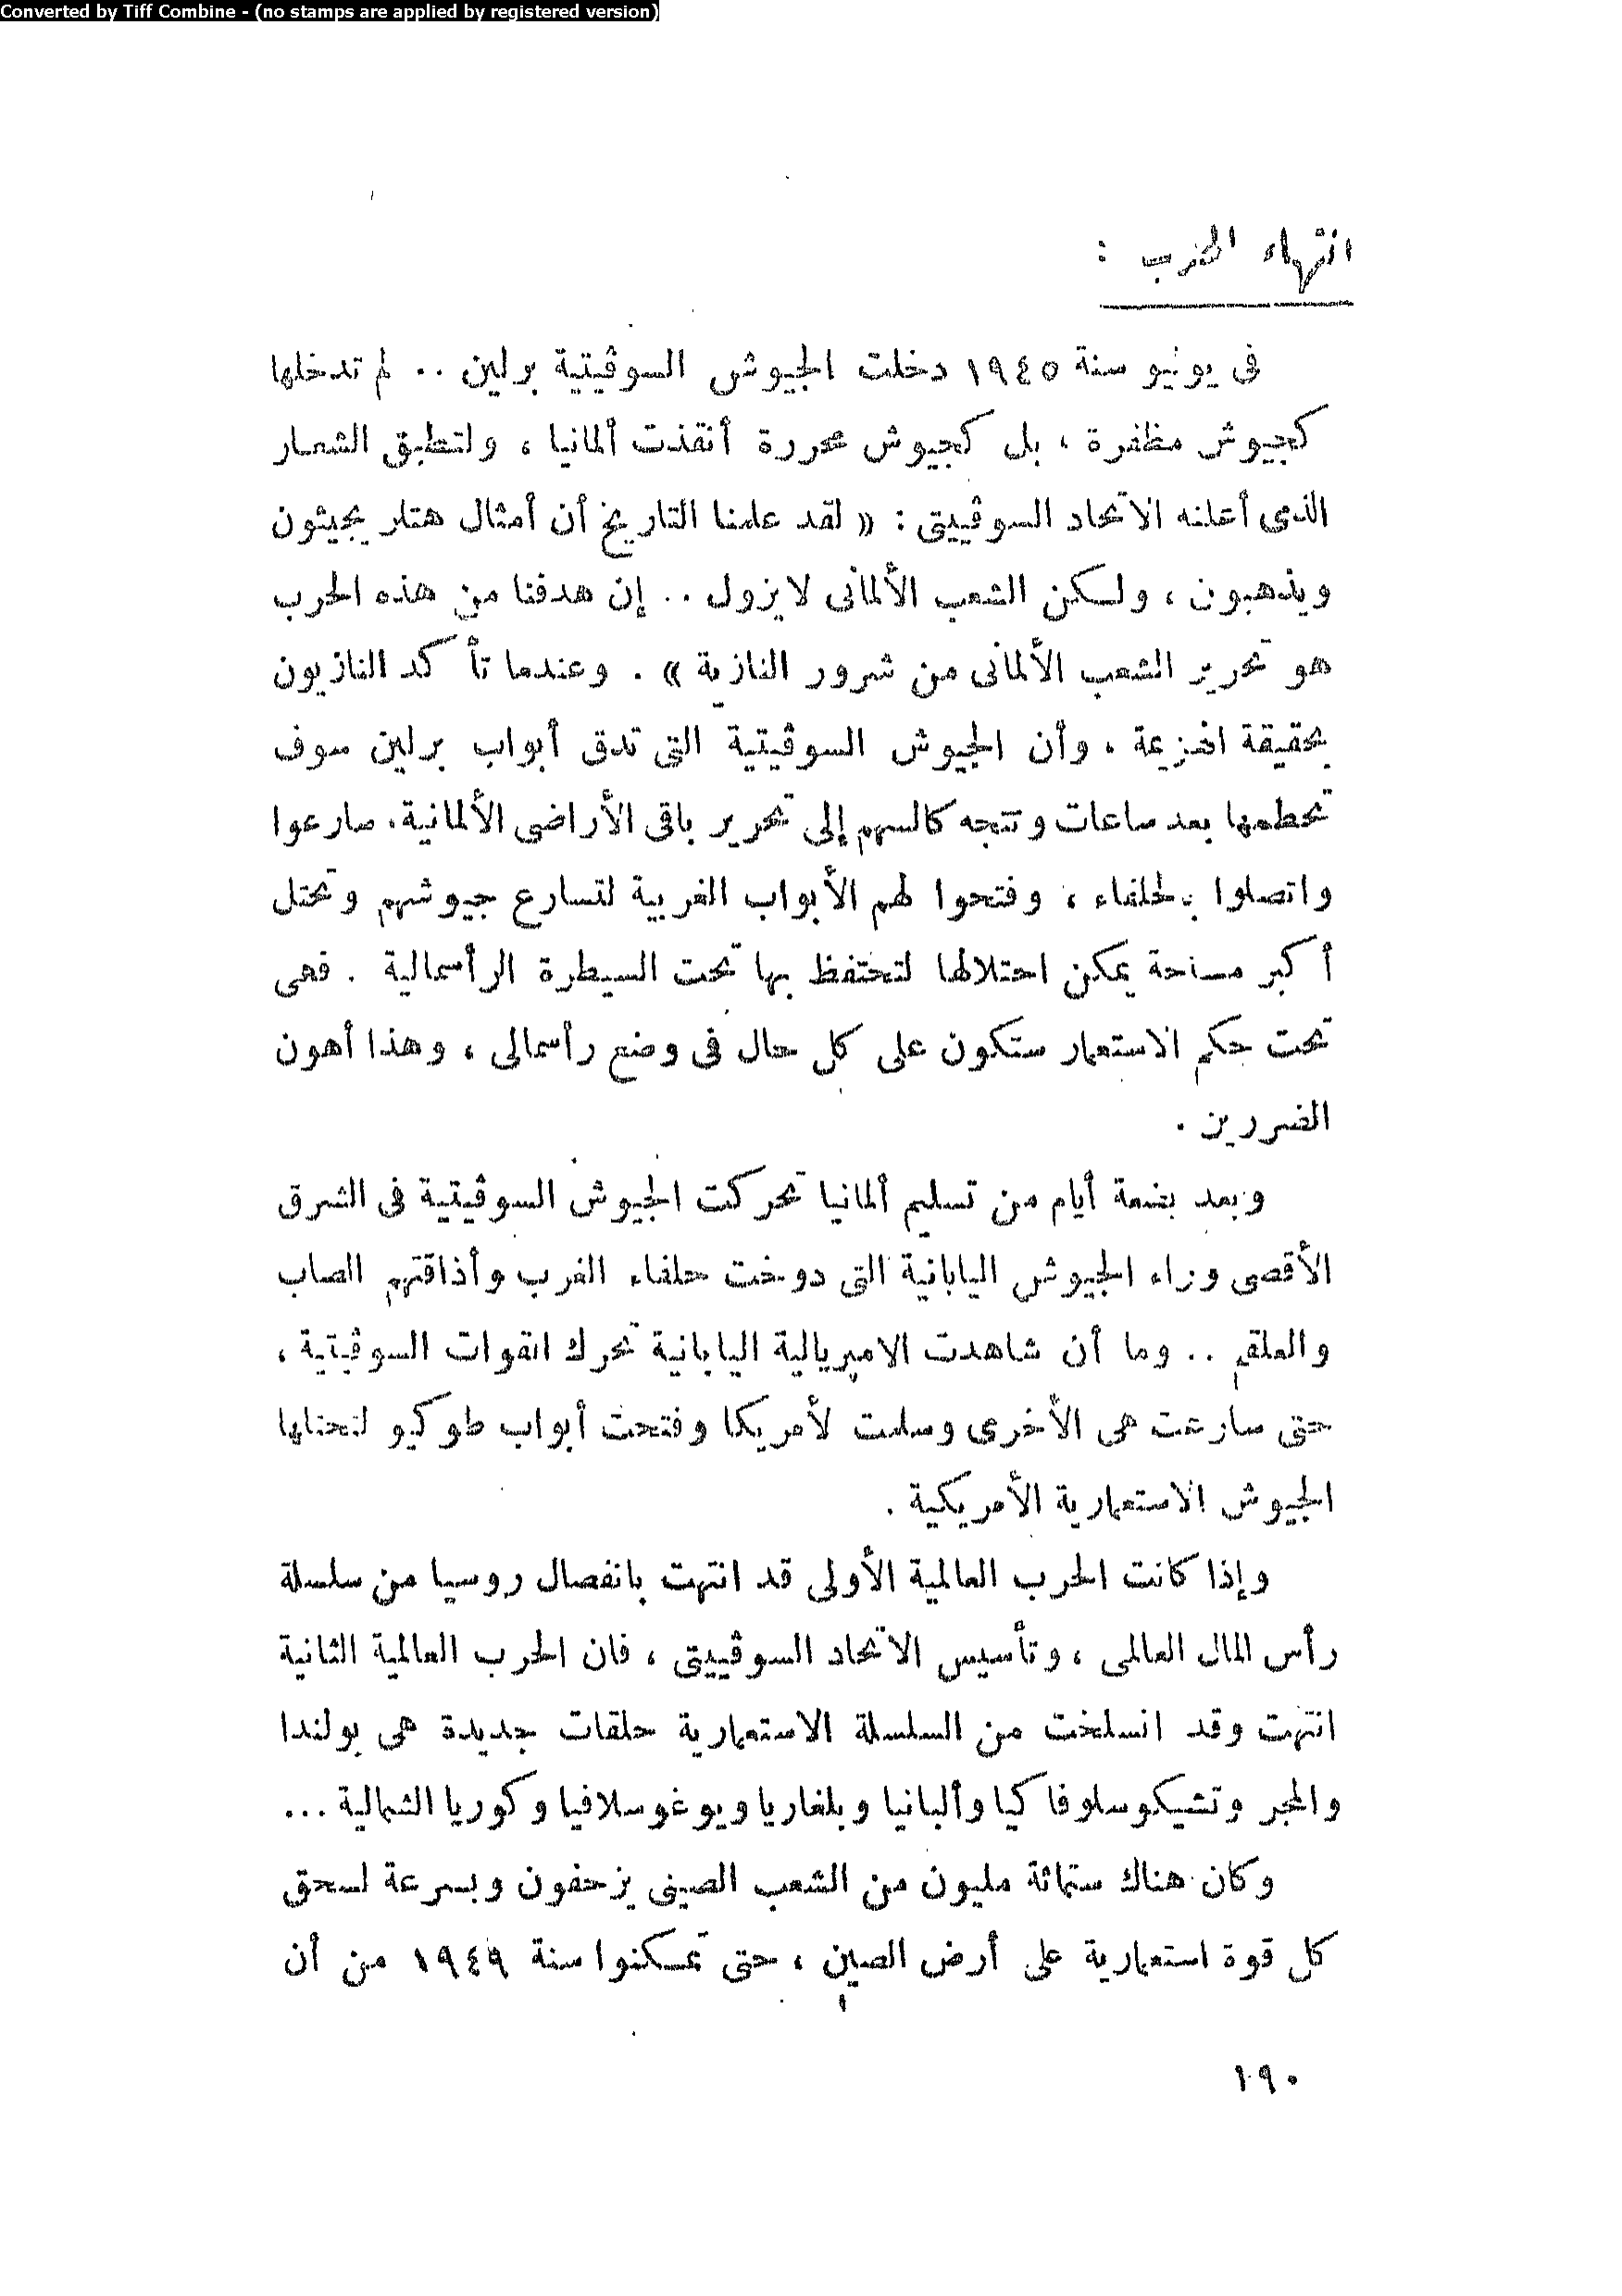 Converted by Tiff Combine - (no stamps are applied by registered version)
انتهاء الحرب :
فى يونيو سنة ١٩٤٥ دخلت الجيوش السوڤيتية برلين .. لم تدخلها
كجيوش مظفرة ، بل كجيوش محررة أنقذت ألمانيا ، ولتطبق الشعار
الذى أعلنه الاتحاد السوڤييتى : « لقد علمنا التاريخ أن أمثال هتلر يجيئون
ويذهبون ، ولكن الشعب الألمانى لا يزول .. إن هدفنا من هذه الحرب
هو تحرير الشعب الألمانى من شرور النازية » . وعندما تأكد النازيون
بحقيقة الهزيمة ، وأن الجيوش السوڤيتية التى تدق أبواب برلين سوف
تحطمها بعد ساعات وتتجه كالسهم إلى تحرير باقى الأراضى الألمانية ، سارعوا
واتصلوا بالحلفاء ، وفتحوا لهم الأبواب الغربية لتسارع جيوشهم وتحتل
أكبر مساحة يمكن احتلالها لتحتفظ بها تحت السيطرة الرأسمالية . فهى
تحت حكم الاستعمار ستكون على كل حال فى وضع رأسمالى ، وهذا أهون
الضررين .
وبعد بضعة أيام من تسليم ألمانيا تحركت الجيوش السوڤيتية فى الشرق
الأقصى وراء الجيوش اليابانية التى دوخت حلفاء الغرب وأذاقتهم الصاب
والعلقم .. وما أن شاهدت الامبريالية اليابانية تحرك القوات السوڤيتية ،
حتى سارعت هى الأخرى وسلمت لأمريكا وفتحت أبواب طوكيو لتحتلها
الجيوش الاستعمارية الأمريكية .
وإذا كانت الحرب العالمية الأولى قد انتهت بانفصال روسيا من سلسلة
رأس المال العالمى ، وتأسيس الاتحاد السوڤييتى ، فان الحرب العالمية الثانية
انتهت وقد انسلخت من السلسلة الاستعمارية حلقات جديدة هى بولندا
والمجر وتشيكوسلوفاكيا وألبانيا وبلغاريا ويوغوسلافيا وكوريا الشمالية ...
وكان هناك ستمائة مليون من الشعب الصينى يزحفون وبسرعة لسحق
كل قوة استعمارية على أرض الصين ، حتى تمكنوا سنة ١٩٤٩ من أن
١٩٠